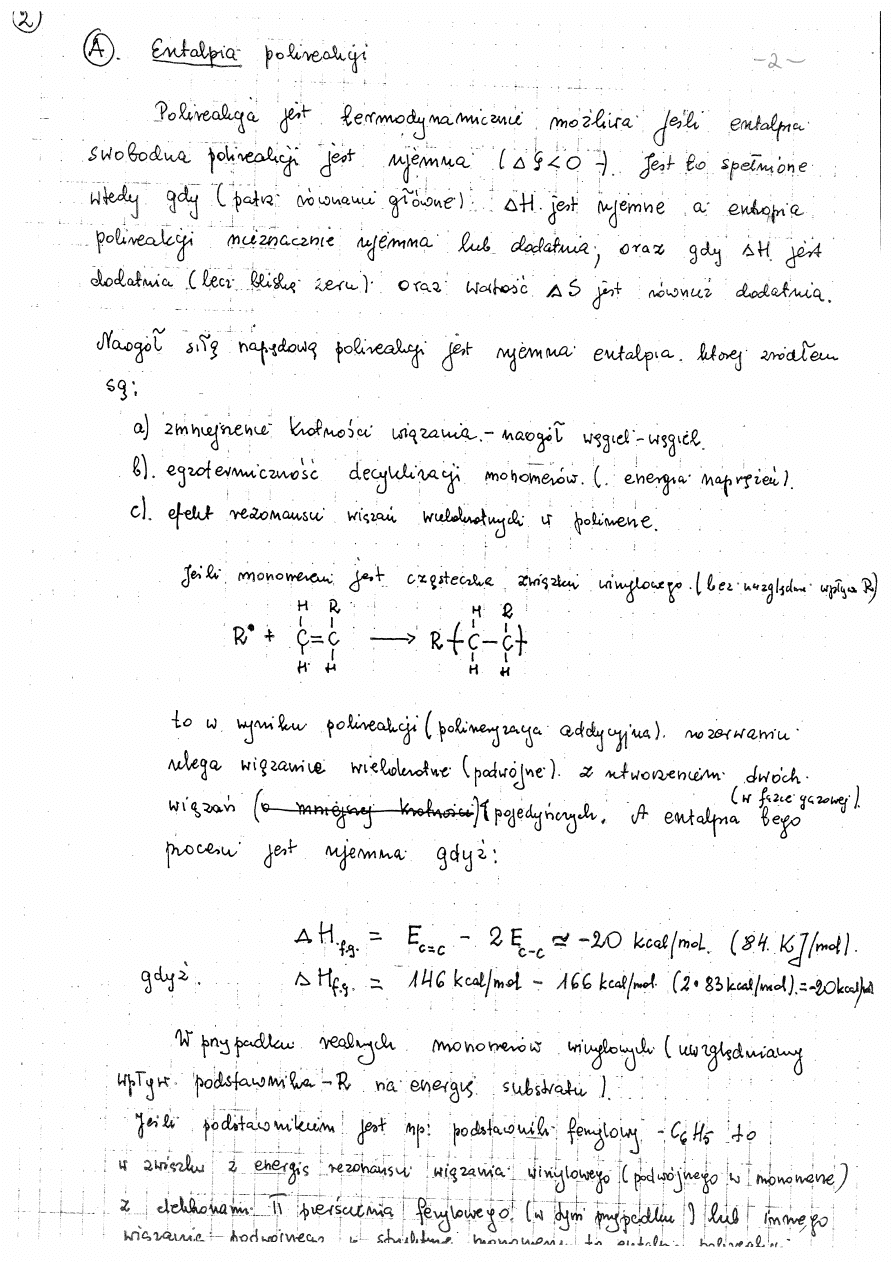 2
A. Entalpia polireakcji
-2-
Polireakcja jest termodynamicznie możliwa jeśli entalpia
swobodna polireakcji jest ujemna (ΔG<0 -). Jest to spełnione
wtedy gdy (patrz równanie główne) ΔH jest ujemne a entropia
polireakcji nieznacznie ujemna lub dodatnia, oraz gdy ΔH jest
dodatnia (lecz bliska zeru) oraz wartość ΔS jest również dodatnia.
Naogół siłą napędową polireakcji jest ujemna entalpia. której źródłem
są:
a) zmniejszenie krotności wiązania. - naogół węgiel-węgiel.
b). egzotermiczność decyklizacji monomerów. (. energia naprężeń).
c). efekt rezonansu wiązań wielokrotnych w polimerze.
Jeśli monomerem jest cząsteczka związku winylowego. (bez uwzględn. wpływu R)
H R H R
R• + C=C → R-(C-C)-
H H H H
to w wyniku polireakcji (polimeryzacja addycyjna). rozerwaniu
ulega wiązanie wielokrotne (podwójne). z utworzeniem dwóch
(w fazie gazowej).
wiązań (o mniejszej krotności) pojedyńczych. A entalpia tego
procesu jest ujemna gdyż:
ΔH f.g. = E c=c - 2 E c-c ≃ -20 kcal/mol. (84. KJ/mol).
gdyż. ΔH f.g. = 146 kcal/mol - 166 kcal/mol. (2•83 kcal/mol). = -20 kcal/mol
W przypadku realnych monomerów winylowych (uwzględniamy
wpływ podstawnika -R na energię substratu).
Jeśli podstawnikiem jest np: podstawnik fenylowy -C6H5 to
w związku z energią rezonansu wiązania winylowego (podwójnego w monomerze)
z elektronami π pierścienia fenylowego. (w tym przypadku) lub innego
wiązania podwójnego w strukturze monomeru to